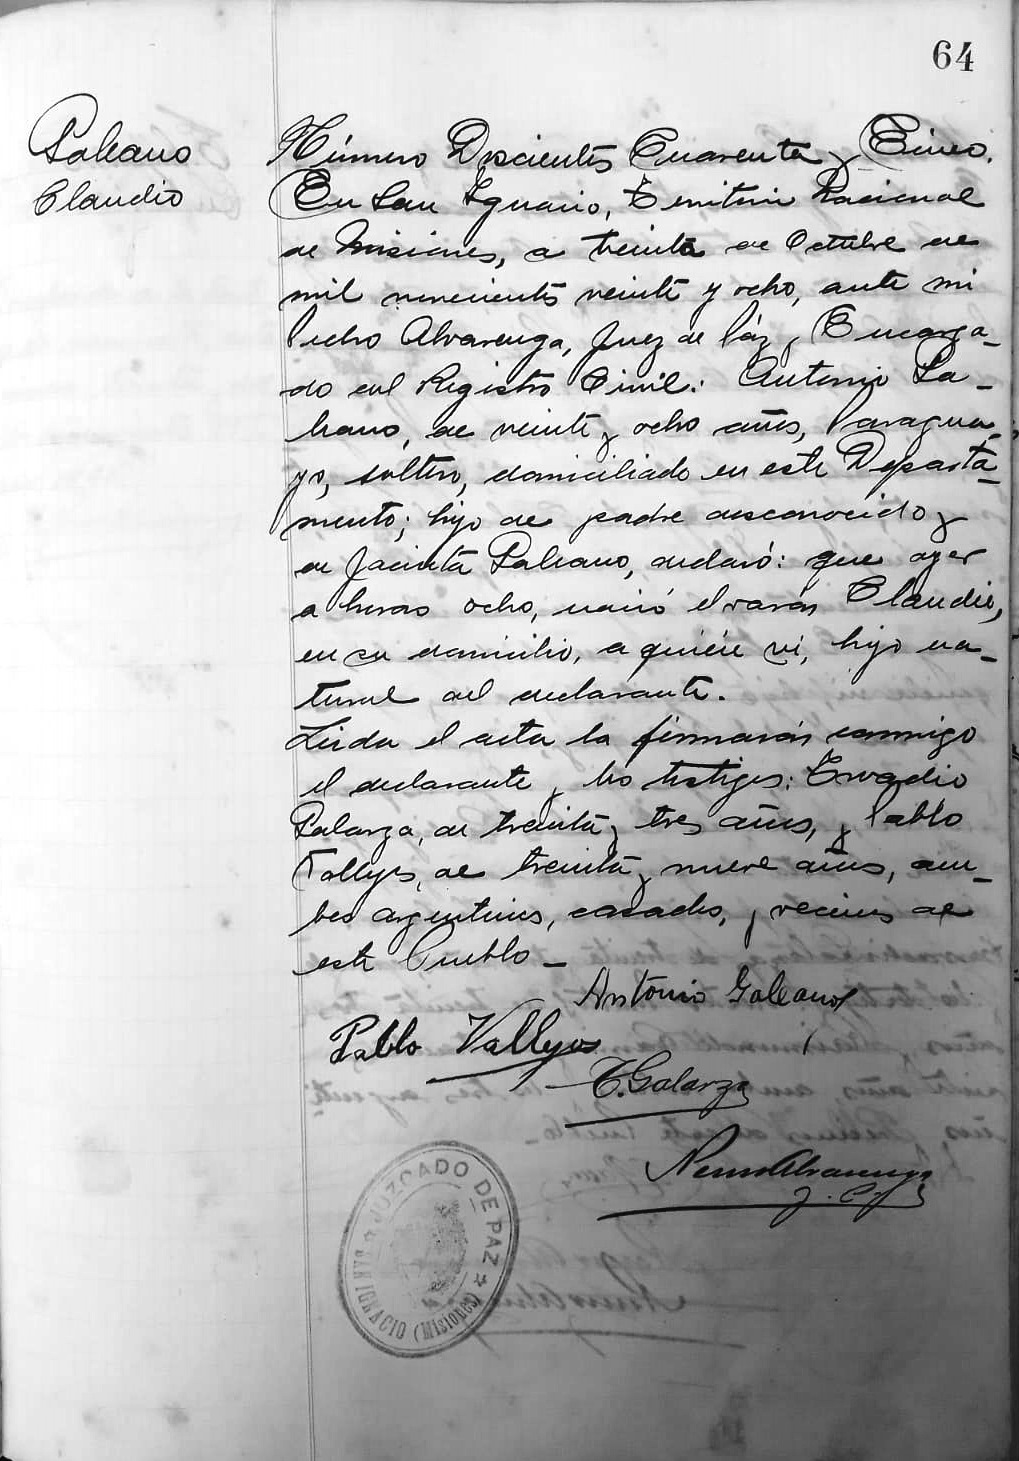 64
Galeano
Claudio
Número Doscientos Cuarenta y Cinco.
En San Ignacio, Territorio Nacional
de Misiones, a treinta de Octubre de
mil novecientos veinte y ocho, ante mi
Pedro Alvarenga, Juez de Páz y Encarga-
do del Registro Civil: Antonio Ga-
leano, de veinte y ocho años, Paragua-
yo, soltero, domiciliado en este Departa-
mento; hijo de padre desconocido y
de Jacinta Galeano, declaró: que ayer
a horas ocho, nació el varón Claudio,
en su domicilio, a quién vi, hijo na-
tural del declarante.
Leida el acta la firmarón conmigo
el declarante y los testigos:
Galarza, de treinta y tres años, y Pablo
Vallejos, de treinta y nueve años, am-
bos argentinos, casados, y vecinos de
este Pueblo -
Antonio Galeano
Pablo Vallejos
T. Galarza
Alvarenga
JUZGADO DE PAZ
SAN IGNACIO (Misiones)